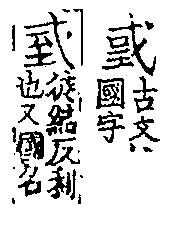 古文
國字
徒結反利
也又國名